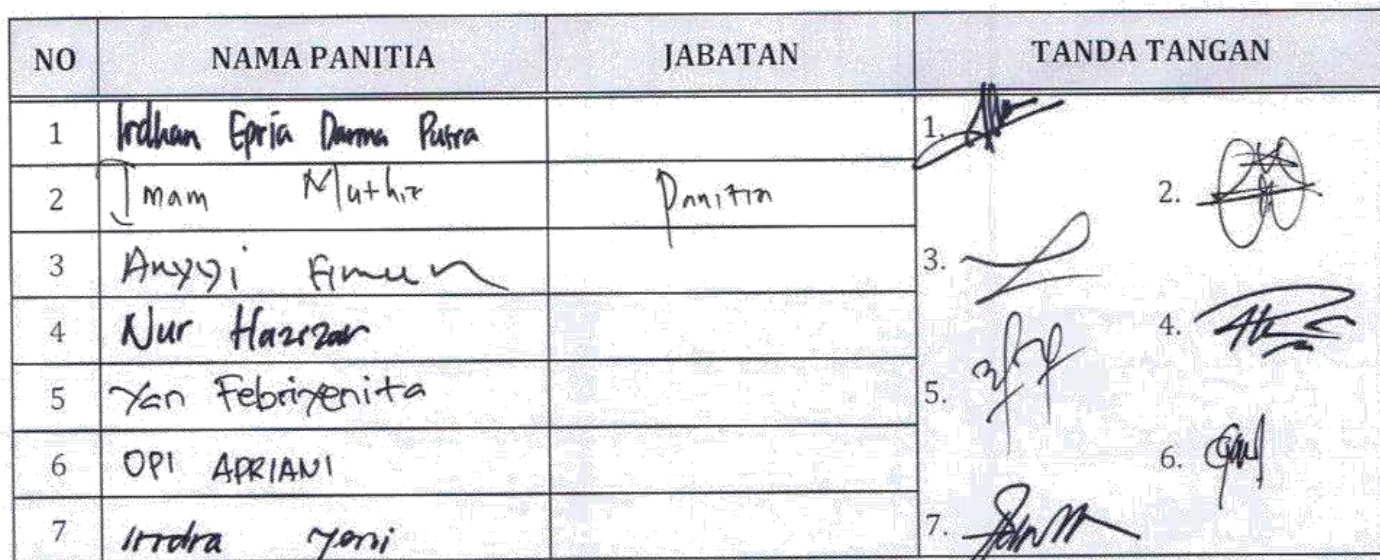 NO NAMA PANITIA JABATAN TANDA TANGAN
1 Irdhan Epria Darma Putra 1.
2 Imam Muthir Panitia 2.
3 Anggi 3.
4 Nur Hazizar 4.
5 Yan Febriyenita 5.
6 OPI APRIANI 6.
7 Indra Yeni 7.